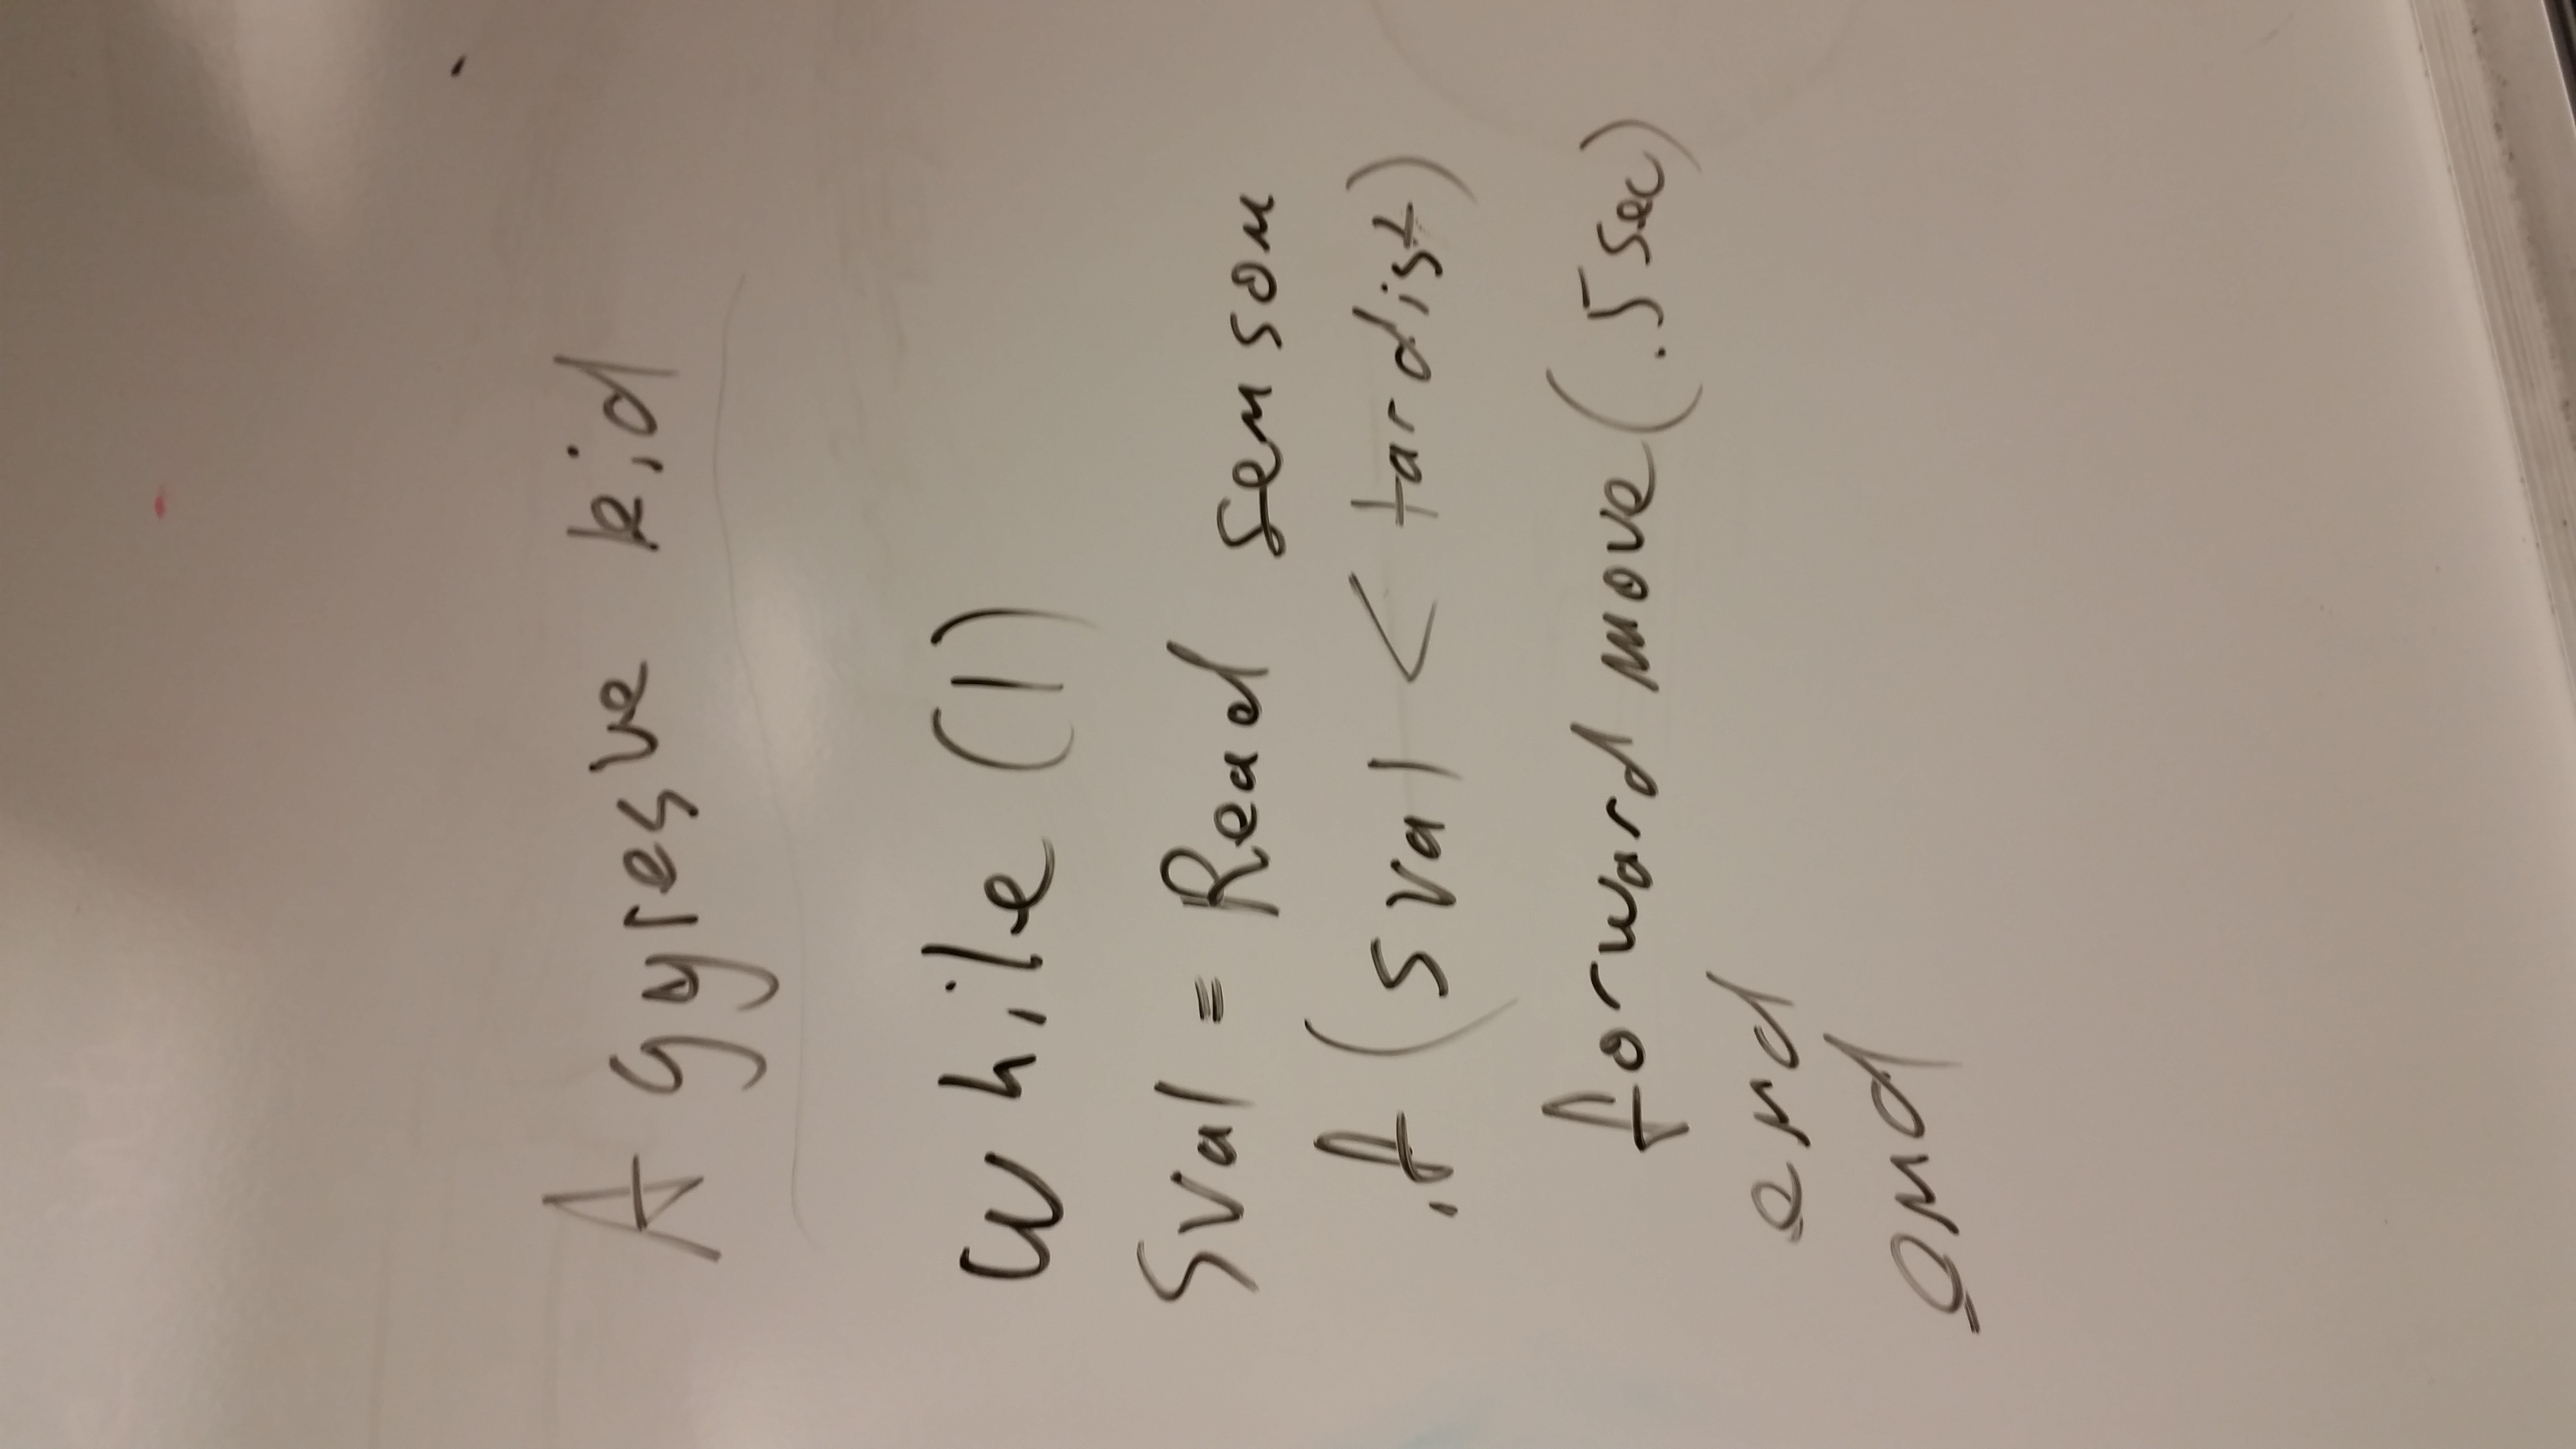 Aggresve kid
while (1)
Sval = Read sensor
if (sval < tardist)
forward move (.5 sec)
end
end